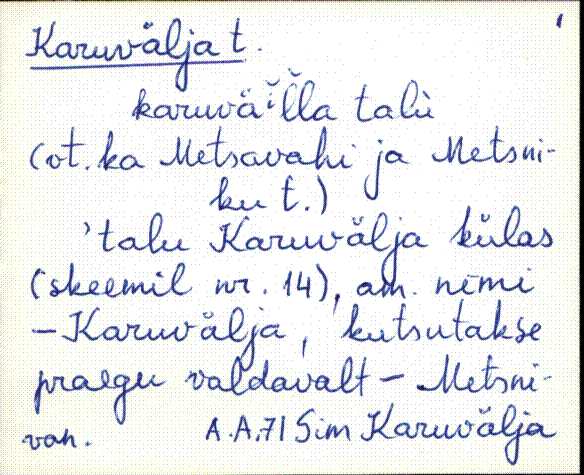 Karuvälja t.
karuvä͕ĭl̆la talù
(ot. ka Metsavahi ja Metsni-
ku t.)
'talu Karuvälja külas
(skeemil nr. 14), am. nimi
– Karuvälja, kutsutakse
praegu valdavalt – Metsni-
vah. A.A.71 Sim Karuvälja